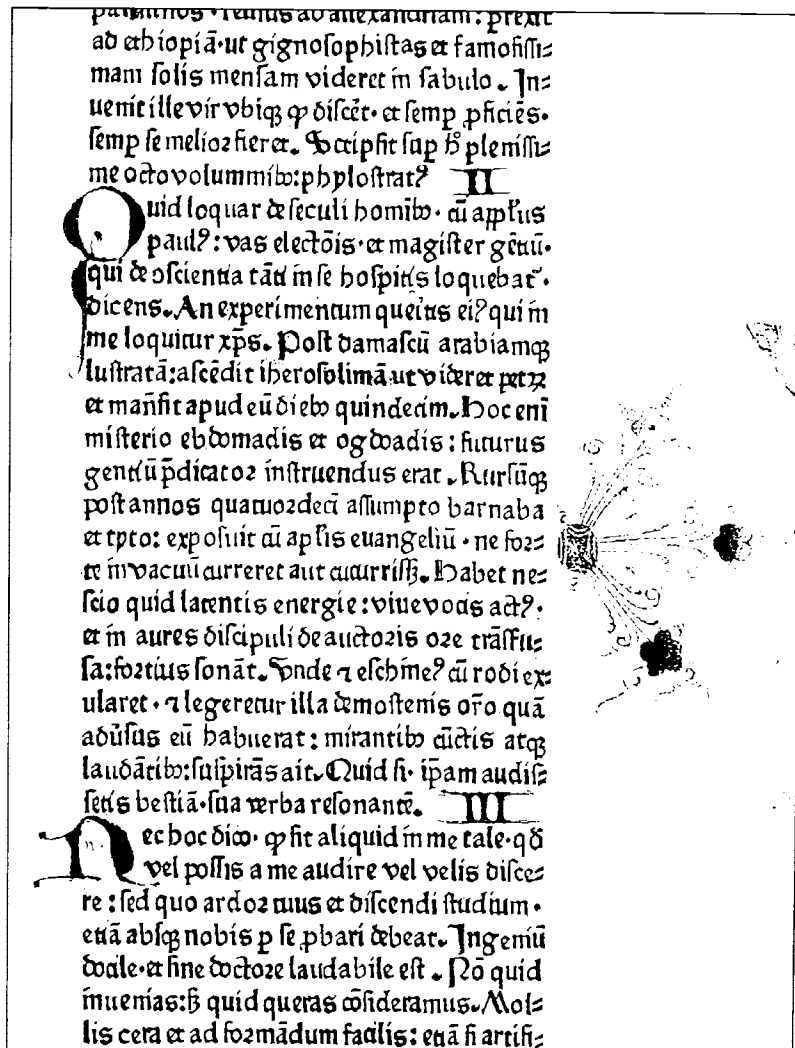 palatinos · rursus ad alexandriam: prexit
ad ethiopiā·ut gignosophistas et famosissi⸗
mam solis mensam videret in sabulo. In⸗
uenit ille vir vbiqꝫ ꝙ discēt· et semp ꝓficiēs·
semp se melior fieret. Scripsit sup hͦ plenissi⸗
me octo voluminibꝫ: phylostratꝰ II
Quid loquar de seculi hominibꝫ· cū apl'us
paulꝰ: vas electōis· et magister gētiū·
qui de ↄscientia tāti in se hospitis loquebat᷑·
dicens. An experimentum queritis eiꝰ qui in
me loquitur xp̄s. Post damascū arabiamqꝫ
lustratā: ascēdit iherosolimā ut videret petꝝ
et māsit apud eū diebꝫ quindecim. Hoc eni
misterio ebdomadis et ogdoadis: futurus
gentiū p̄dicator instruendus erat. Rursūqꝫ
post annos quatuordeci assumpto barnaba
et tyto: exposuit cū apl'is euangeliū· ne for⸗
te in vacuū curreret aut cucurrissꝫ. Habet ne⸗
scio quid latentis energie: viue vocis actꝰ·
et in aures discipuli de auctoris ore trāsfu⸗
sa: fortius sonāt. Vnde ⁊ eschineꝰ cū rodi ex⸗
ularet· ⁊ legeretur illa demostenis or̄o quā
aduersus eū habuerat: mirantibꝫ cūctis atqꝫ
laudātibꝫ: suspirās ait. Quid si· ip̄am audis⸗
setis bestiā· sua verba resonantē. III
Nec hoc dico· ꝙ sit aliquid in me tale· qd̄
vel possis a me audire vel velis disce⸗
re: sed quo ardor tuus et discendi studium·
etiā absqꝫ nobis p se ꝓbari debeat. Ingeniū
docile· et sine doctore laudabile est. Nō quid
inuenias: sꝫ quid queras cōsideramus. Mol⸗
lis cera et ad formādum facilis: etiā si artifi⸗